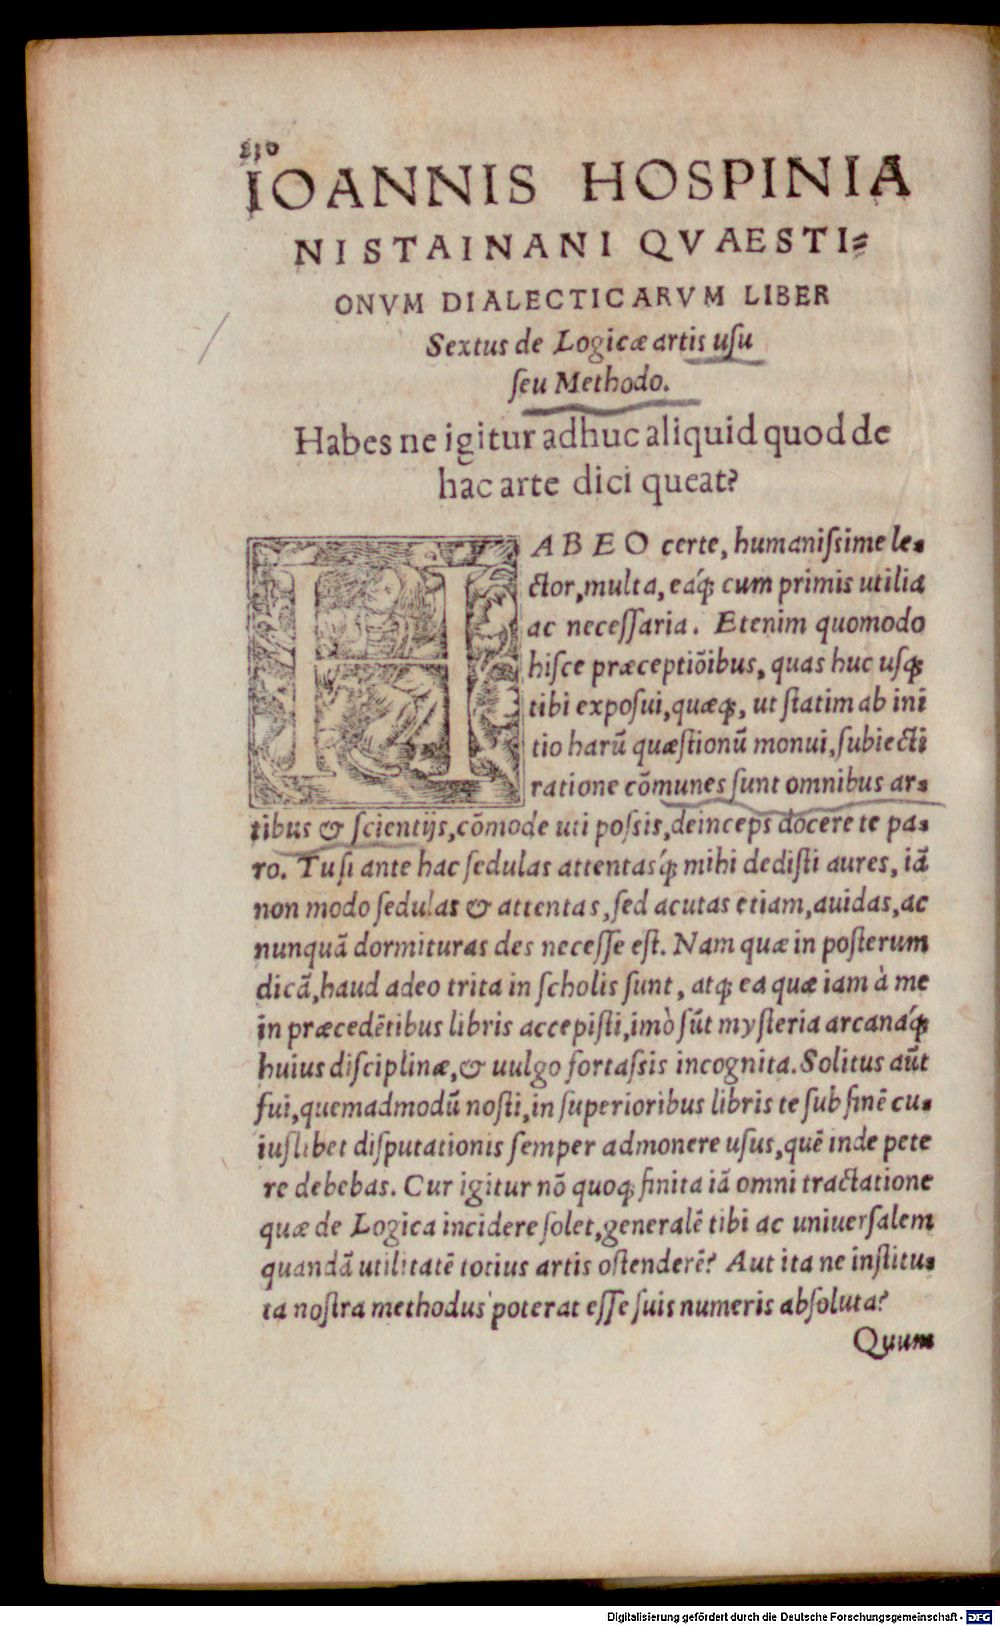 230
IOANNIS HOSPINIA
NI STAINANI QVAESTI⸗
ONVM DIALECTICARVM LIBER
Sextus de Logicæ artis uſu
ſeu Methodo.
Habes ne igitur adhuc aliquid quod de
hac arte dici queat?
HABEO certe, humaniſsime le⸗
ctor, multa, eáq́; cum primis utilia
ac neceſſaria. Etenim quomodo
hiſce præceptiõibus, quas huc uſq;
tibi expoſui, quæq;, ut ſtatim ab ini
tio harũ quæſtionũ monui, ſubiecti
ratione cõmunes ſunt omnibus ar⸗
tibus & ſcientijs, cõmode uti poſsis, deinceps docere te pa⸗
ro. Tu ſi ante hac ſedulas attentasq́; mihi dediſti aures, iã
non modo ſedulas & attentas, ſed acutas etiam, auidas, ac
nunquã dormituras des neceſſe eſt. Nam quæ in poſterum
dicã, haud adeo trita in ſcholis ſunt, atq; ea quæ iam à me
in præcedẽtibus libris accepiſti, imò sũt myſteria arcanaq́;
huius diſciplinæ, & uulgo fortaſsis incognita. Solitus aũt
fui, quemadmodũ noſti, in ſuperioribus libris te ſub finẽ cu⸗
iuſlibet diſputationis ſemper admonere uſus, quẽ inde pete
re debebas. Cur igitur nõ quoq; finita iã omni tractatione
quæ de Logica incidere ſolet, generalẽ tibi ac uniuerſalem
quandã utilitatẽ totius artis oſtenderẽ? Aut ita ne inſtitu⸗
ta noſtra methodus poterat eſſe ſuis numeris abſoluta?
Quum
Digitalisierung gefördert durch die Deutsche Forschungsgemeinschaft - DFG